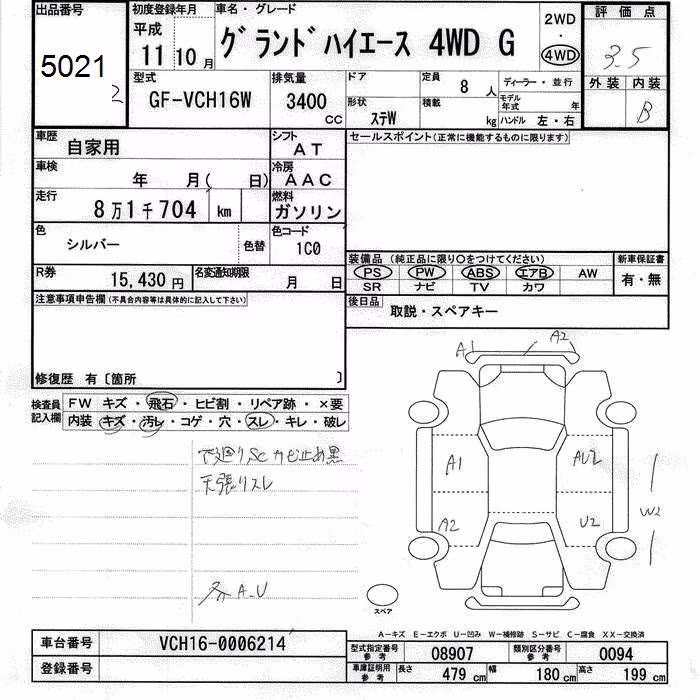 出品番号 初度登録年月 車名・グレード 2WD・4WD 評価点
5021 平成 11 10月 グランドハイエース 4WD G 3.5
2 型式 排気量 ドア 定員 8人 ディーラー・並行 外装 内装
GF-VCH16W 3400cc 形状 ステW 積載 kg モデル年式 年 ハンドル 左・右 B
車歴 自家用 シフト AT セールスポイント(正常に機能するものに限ります)
車検 年 月( 日) 冷房 AAC
走行 8万1千704 km 燃料 ガソリン
色 シルバー 色替 色コード 1C0
装備品 (純正品に限り○をつけてください) 新車保証書
R券 15,430円 名変通知期限 月 日 PS PW ABS エアB AW 有・無
SR ナビ TV カワ
注意事項申告欄(不具合内容等は具体的に記入して下さい) 後日品 取説・スペアキー
修復歴 有〔箇所 〕
検査員記入欄 FW キズ・飛石・ヒビ割・リペア跡・×要
内装 キズ・汚レ・コゲ・穴・スレ・キレ・破レ
A1 A2
天張リスレ
A1 AU2
A2 U2 W2
各A.U
スペア
A-キズ E-エクボ U-凹み W-補修跡 S-サビ C-腐食 XX-交換済
車台番号 VCH16-0006214 型式指定番号 参考 08907 類別区分番号 参考 0094
登録番号 車庫証明用 参考 長さ 479cm 幅 180cm 高さ 199cm